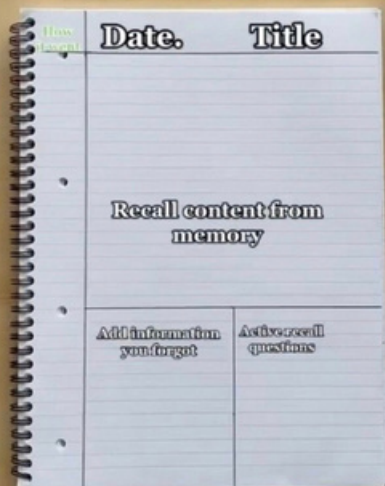 How
it went
Date. Title
Recall content from
memory
Add information
you forgot
Active recall
questions